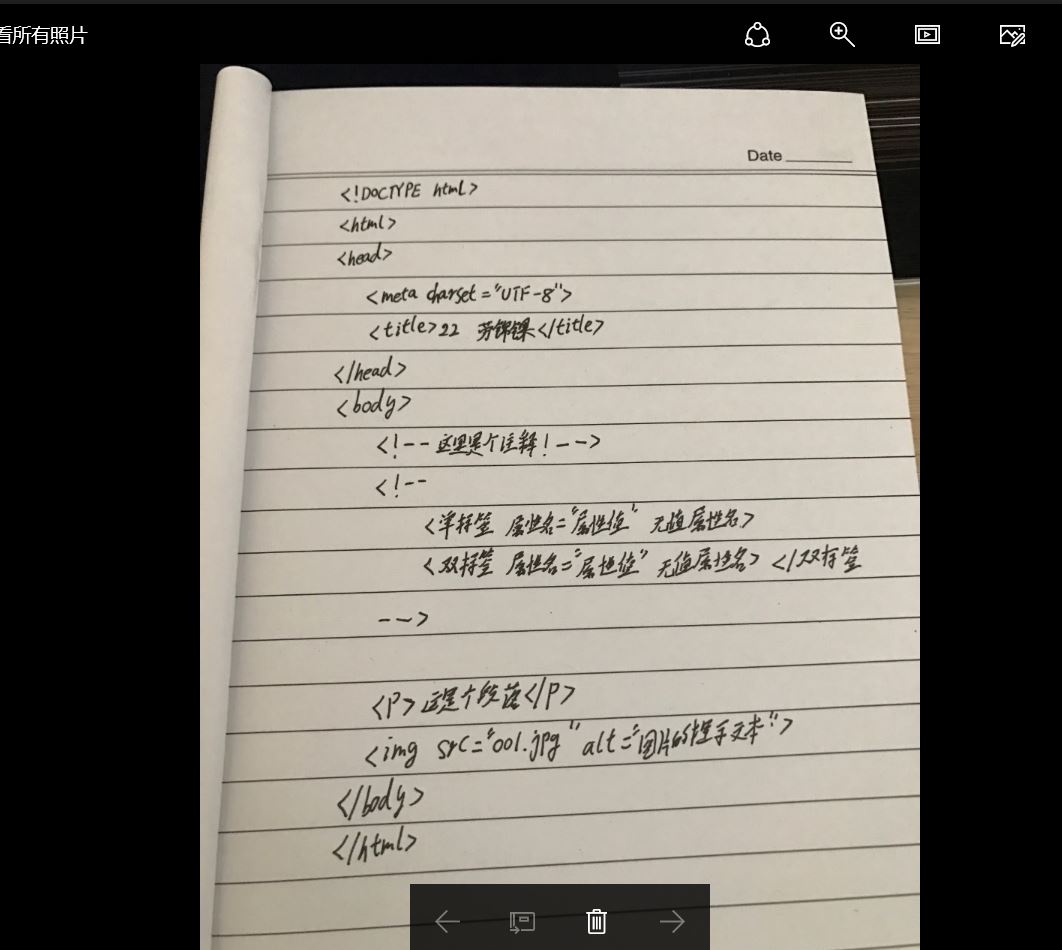 看所有照片
Date
<!DOCTYPE html>
<html>
<head>
<meta charset="UTF-8">
<title>22 </title>
</head>
<body>
<!--这里是个注释!-->
<!--
<单标签 属性名="属性值" 无值属性名>
<双标签 属性名="属性值" 无值属性名> </双标签
-->
<P>这是个段落</P>
<img src="001.jpg" alt="图片的提示文本">
</body>
</html>